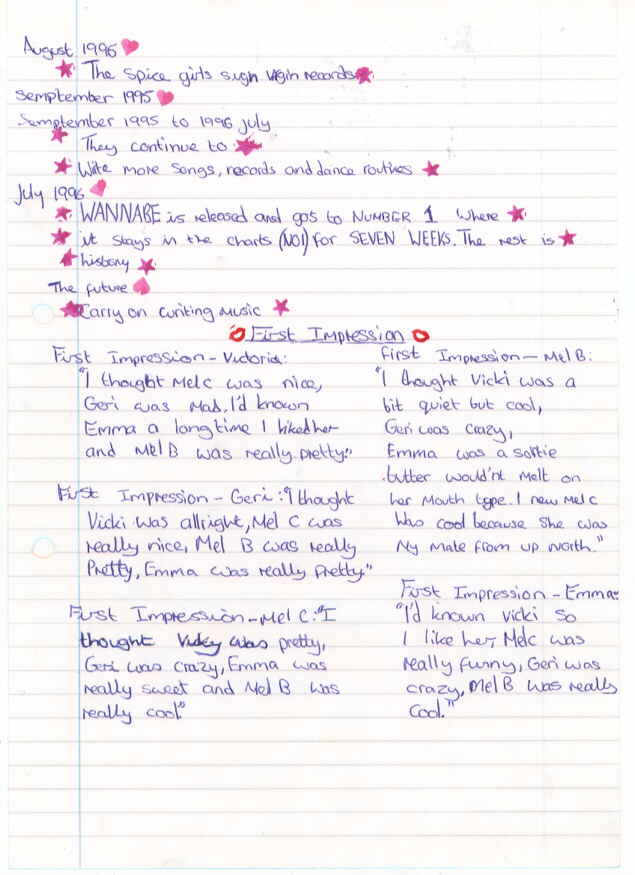 August 1996
The Spice girls sign Virgin records
Semptember 1995
Semptember 1995 to 1996 July
They continue to
Write more songs, records and dance routines
July 1996
WANNABE is released and gos to NUMBER 1 where
it stays in the charts (NO1) for SEVEN WEEKS. The rest is
history
The future
Carry on writing music
First Impression
First Impression - Victoria:
"I thought Mel C was nice,
Geri was Mad. I'd known
Emma a long time I liked her
and Mel B was really pretty."
First Impression - Geri: "I thought
Vicki was allright, Mel C was
really nice, Mel B was really
Pretty, Emma was really Pretty"
First Impression - Mel C: "I
thought Vicky was pretty,
Geri was crazy, Emma was
really sweet and Mel B was
really cool"
First Impression - Mel B:
"I thought Vicki was a
bit quiet but cool,
Geri was crazy,
Emma was a softie
butter would'nt melt on
her mouth type. I new Mel C
was cool because she was
My mate from up north."
First Impression - Emma:
"I'd known Vicki so
I like her, Mel C was
really funny, Geri was
crazy, Mel B was really
Cool."